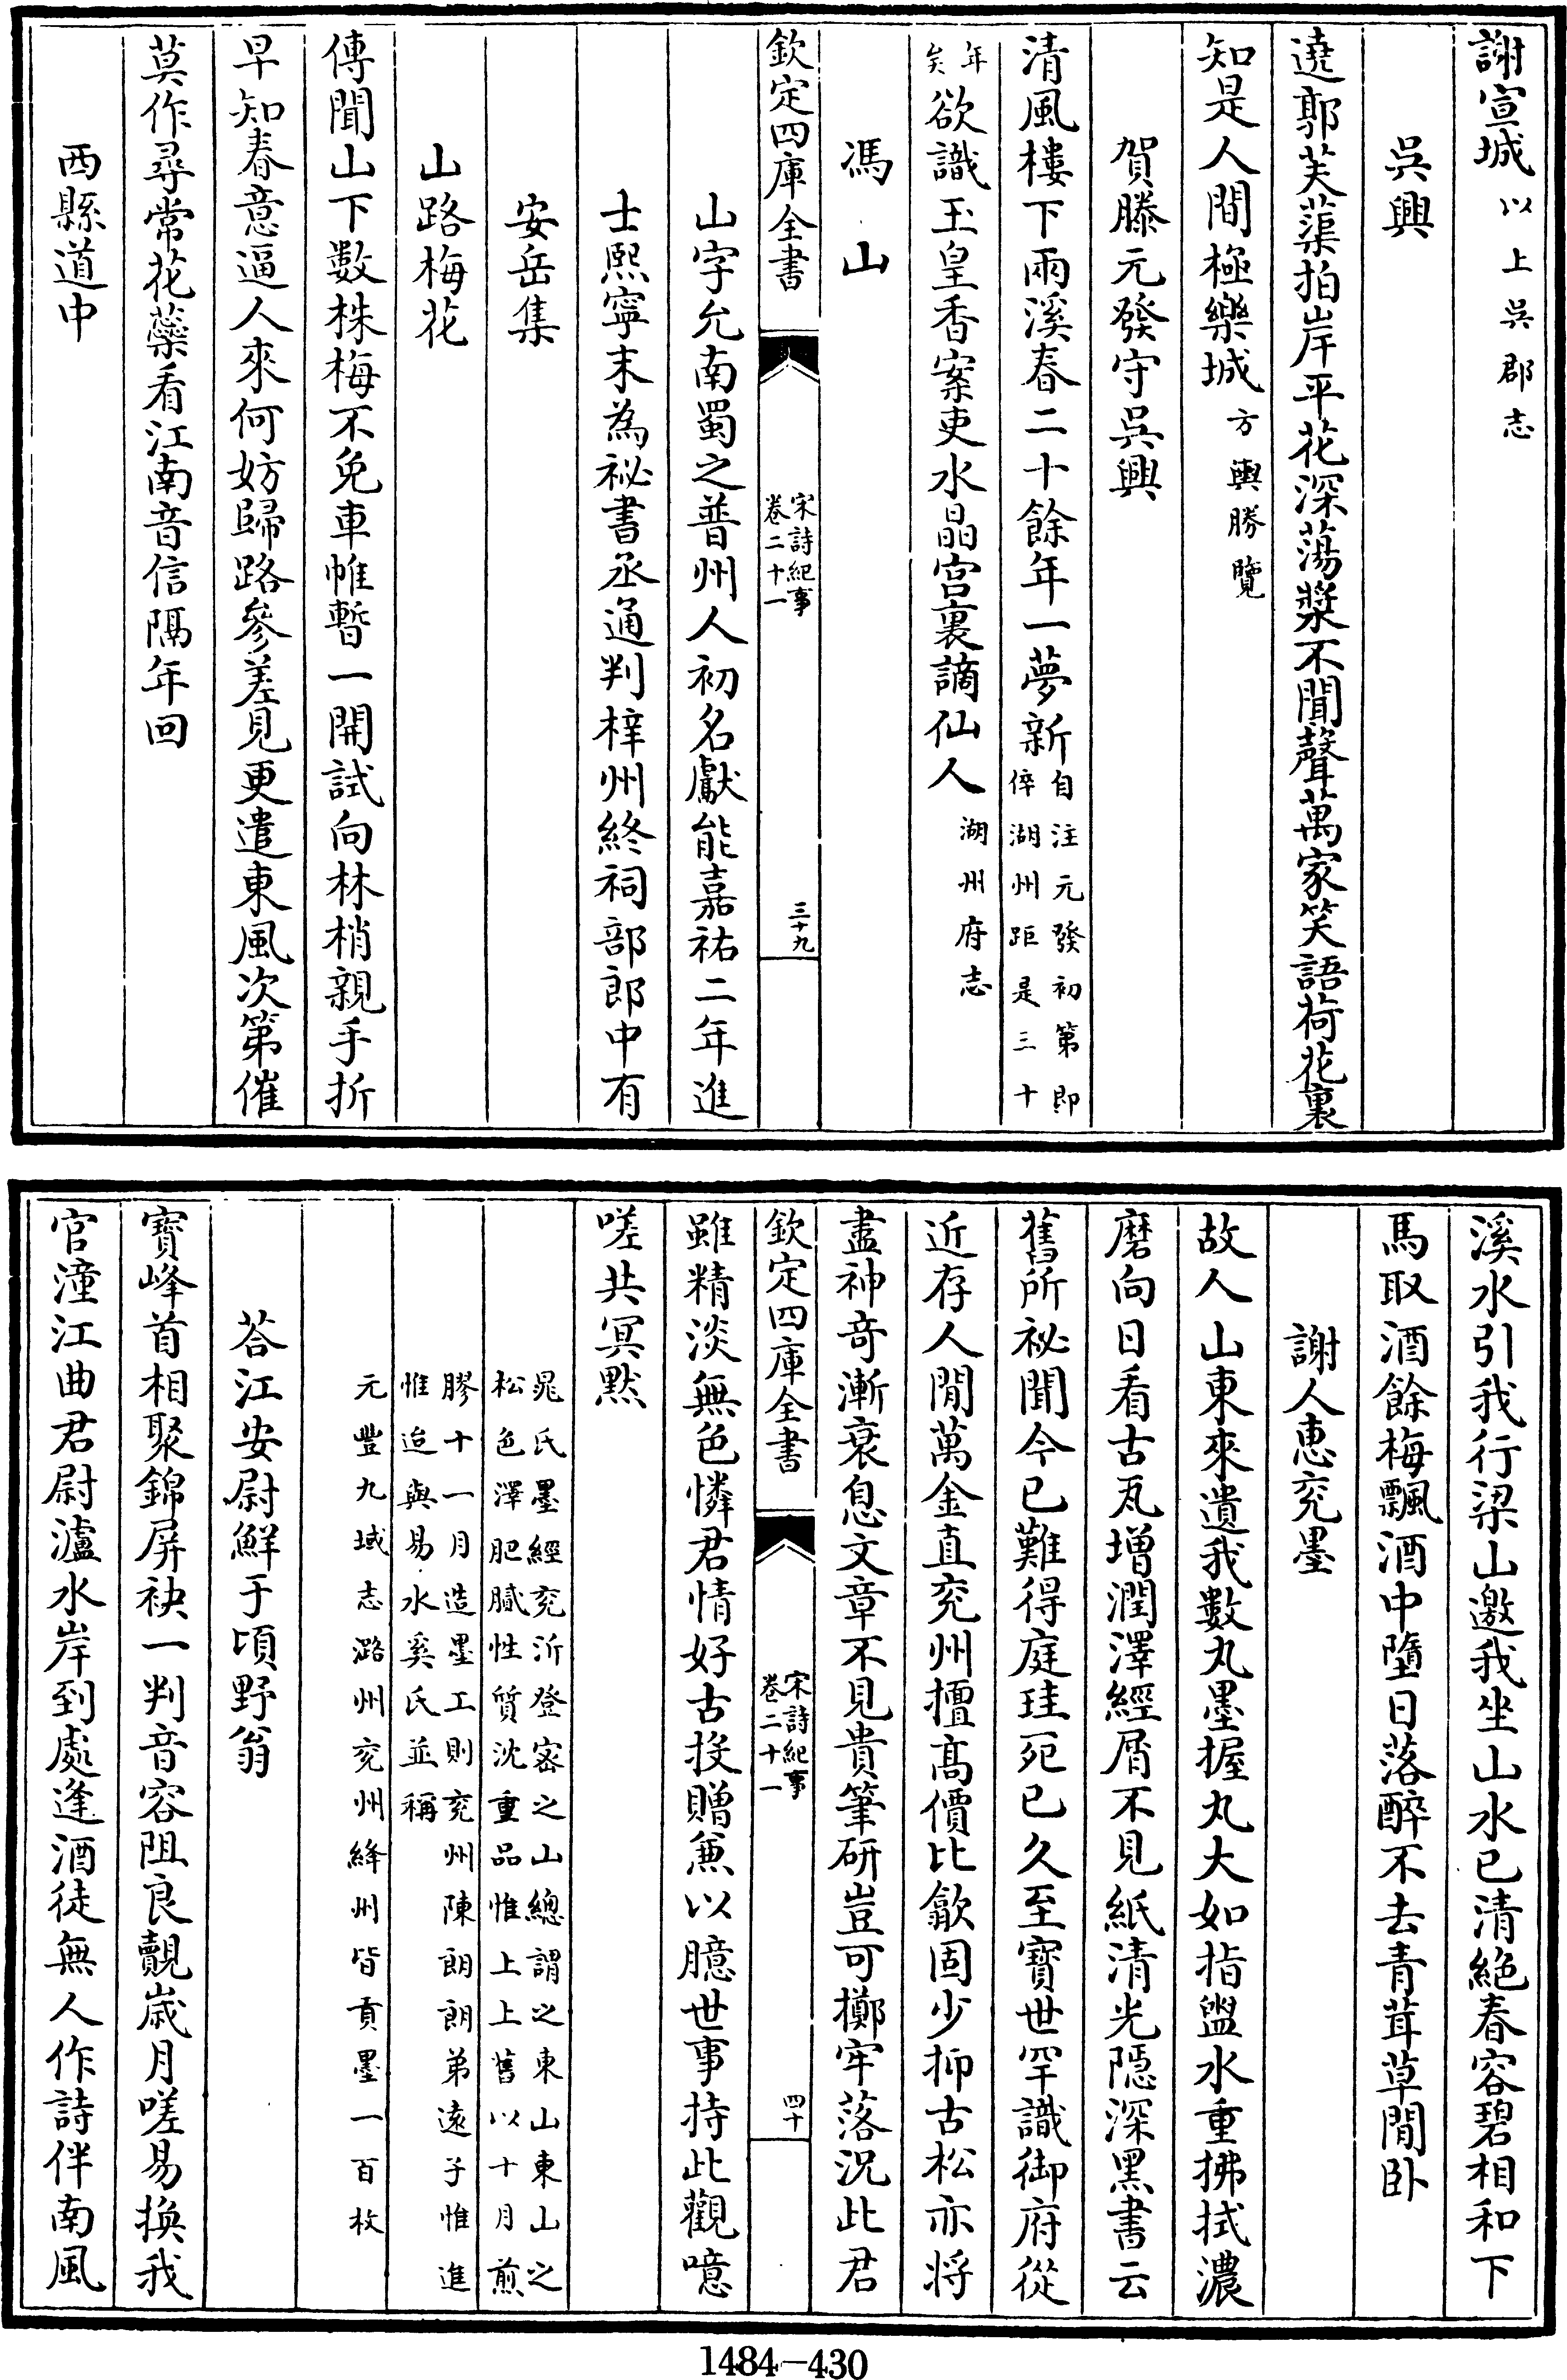 謝宣城以上吳郡志
吳興
遶郭芙蕖拍岸平花深蕩槳不聞聲萬家笑語荷花裏
知是人間極樂城方輿勝覽
賀滕元發守吳興
清風樓下兩溪春二十餘年一夢新自注元發初第即倅湖州距是三十
年矣欲識玉皇香案吏水晶宮裏謫仙人湖州府志
馮山
欽定四庫全書
宋詩紀事
卷二十一
三十九
山字允南蜀之普州人初名獻能嘉祐二年進
士熙寧末為祕書丞通判梓州終祠部郎中有
安岳集
山路梅花
傳聞山下數株梅不免車帷暫一開試向林梢親手折
早知春意逼人來何妨歸路參差見更遣東風次第催
莫作尋常花蘂看江南音信隔年回
西縣道中
溪水引我行梁山邀我坐山水已清絶春容碧相和下
馬取酒餘梅飄酒中墮日落醉不去青茸草間卧
謝人惠兖墨
故人山東來遺我數丸墨握丸大如指盥水重拂拭濃
磨向日看古瓦增潤澤經屑不見紙清光隱深黑書云
舊所祕聞今已難得庭珪死已久至寳世罕識御府從
近存人間萬金直兖州擅髙價比歙固少抑古松亦将
盡神竒漸衰息文章不見貴筆研豈可擲牢落況此君
欽定四庫全書
宋詩紀事
卷二十一
四十
雖精淡無色憐君情好古投贈兼以臆世事持此觀噫
嗟共冥黙
晁氏墨經兖沂登密之山總謂之東山東山之
松色澤肥膩性質沈重品惟上上舊以十月煎
膠十一月造墨工則兖州陳朗朗弟遠子惟進
惟迨與易水奚氏並稱
元豐九域志潞州兖州絳州皆貢墨一百枚
荅江安尉鮮于頃野翁
寳峰首相聚錦屏袂一判音容阻良覿嵗月嗟易換我
官潼江曲君尉瀘水岸到處逢酒徒無人作詩伴南風
1484—430